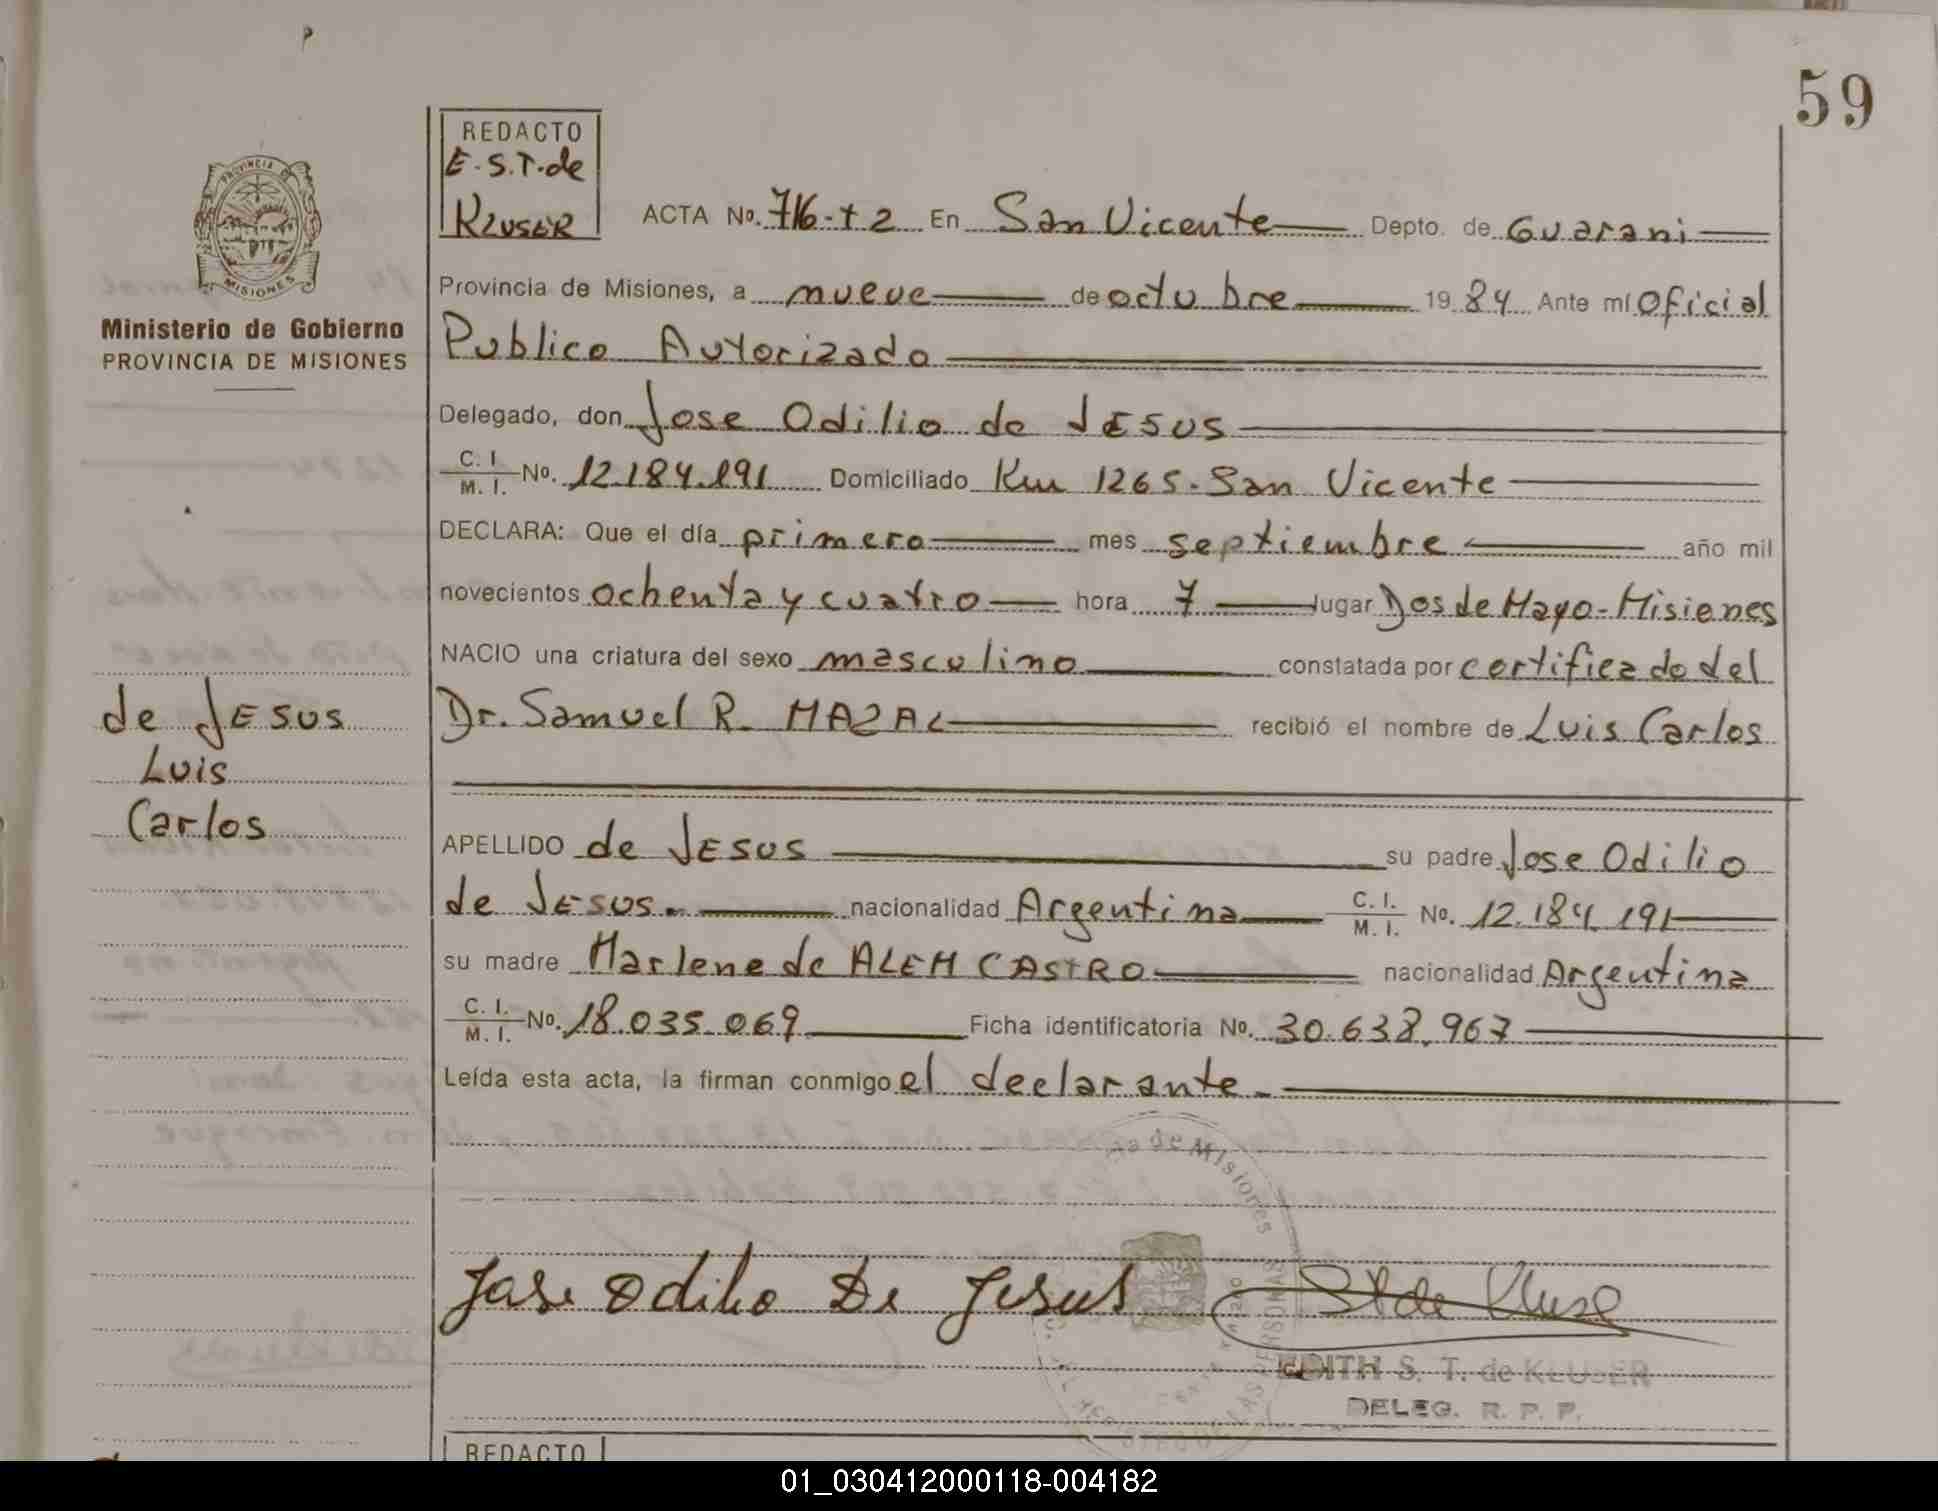 59
REDACTO
E.S.T. de
KLUSER
PROVINCIA DE
MISIONES
Ministerio de Gobierno
PROVINCIA DE MISIONES
ACTA No. 716-t2 En San Vicente Depto. de Guarani
Provincia de Misiones, a nueve de octubre 1984 Ante mí Oficial
Publico Autorizado
Delegado, don Jose Odilio de JESUS
C. I. / M. I. No. 12.184.191 Domiciliado Km 1265. San Vicente
DECLARA: Que el día primero mes septiembre año mil
novecientos ochenta y cuatro hora 7 lugar Dos de Mayo - Misiones
NACIO una criatura del sexo masculino constatada por certificado del
Dr. Samuel R. MAZAL recibió el nombre de Luis Carlos
de JESUS
Luis
Carlos
APELLIDO de JESUS su padre Jose Odilio
de JESUS.- nacionalidad Argentina C. I. / M. I. No. 12.184.191
su madre Marlene de ALEM CASTRO nacionalidad Argentina
C. I. / M. I. No. 18.035.069 Ficha identificatoria No. 30.638.967
Leída esta acta, la firman conmigo el declarante.-
de Misiones
Jose Odilio De Jesus
St de Kluse
EDITH S. T. de KLUSER
DELEG. R. P. P.
REDACTO
01_030412000118-004182